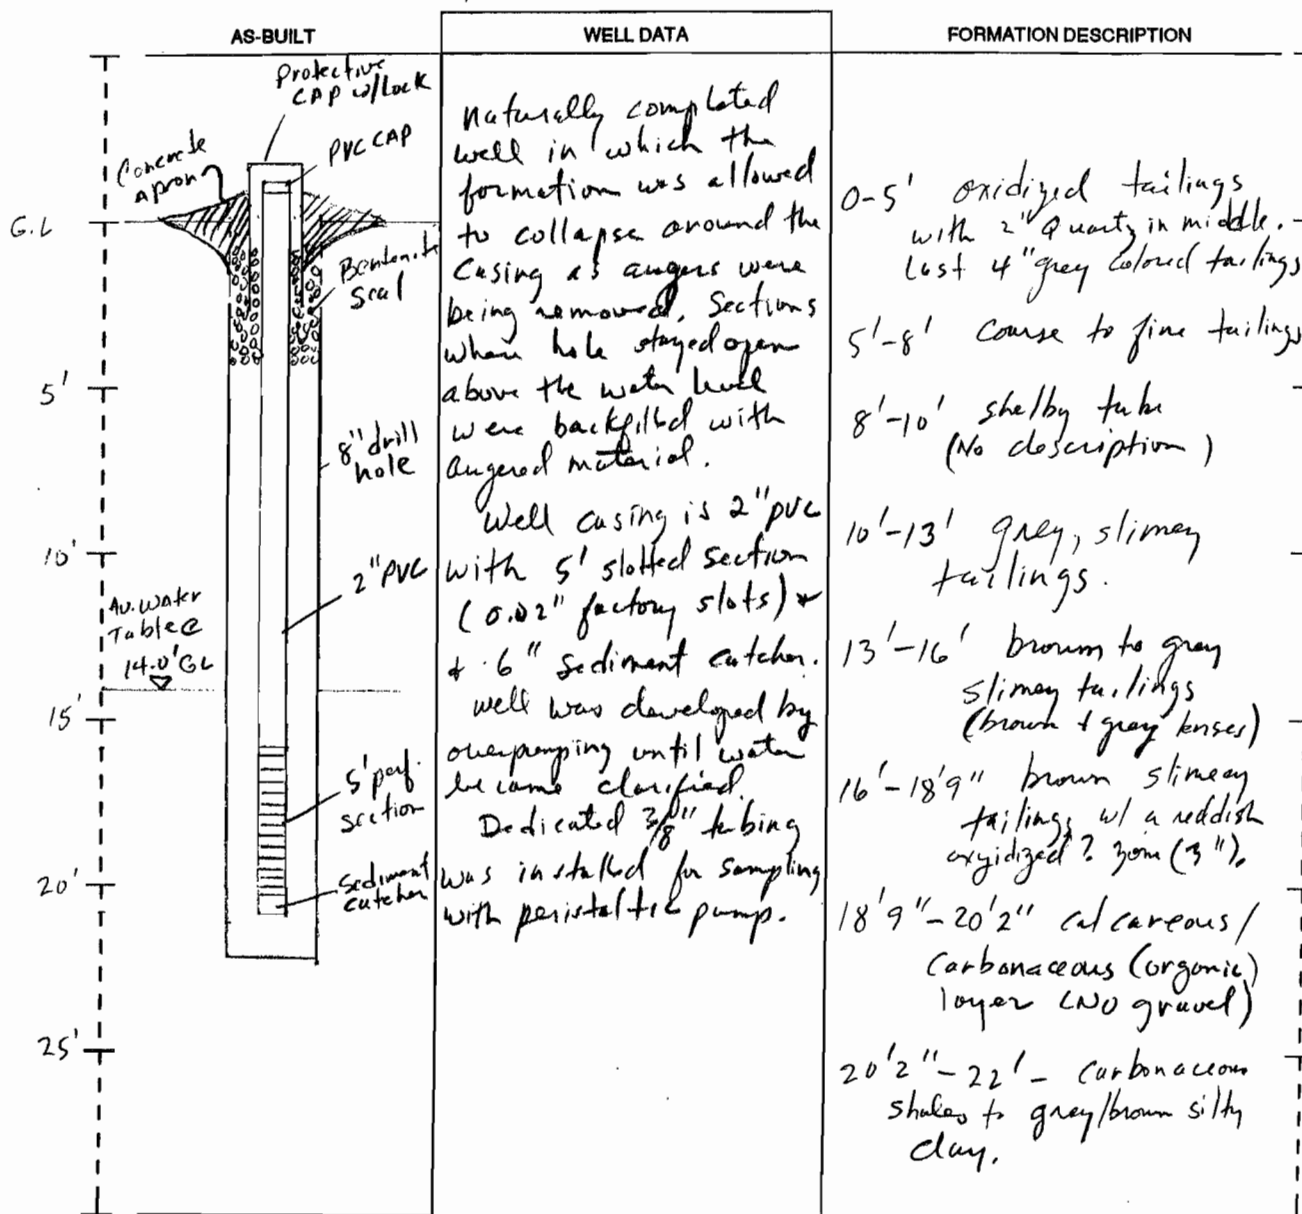 AS-BUILT
WELL DATA
FORMATION DESCRIPTION
Protective
CAP w/Lock
PVC CAP
Concrete
apron
G.L
Bentonite
Seal
5'
8" drill
hole
10'
2" PVC
Av. Water
Table @
14.0' GL
15'
5' perf.
section
20'
Sediment
catcher
25'
Naturally completed
well in which the
formation was allowed
to collapse around the
Casing as augers were
being removed. Sections
where hole stayed open
above the water level
were backfilled with
augered material.
Well casing is 2" pvc
with 5' slotted section
(0.02" factory slots) +
+ .6" sediment catcher.
well was developed by
overpumping until water
became clarified.
Dedicated 3/8" tubing
was installed for sampling
with peristaltic pump.
0-5' oxidized tailings
with 2" Quartz in middle.
Last 4" grey colored tailings
5'-8' course to fine tailings
8'-10' shelby tube
(No description)
10'-13' grey, slimey
tailings.
13'-16' brown to gray
slimey tailings
(brown + gray lenses)
16'-18'9" brown slimeey
tailings w/ a reddish
oxyidized? zone (3").
18'9"-20'2" calcareous/
Carbonaceous (organic)
layer (NO gravel)
20'2"-22'- Carbonaceous
shales to gray/brown silty
clay.